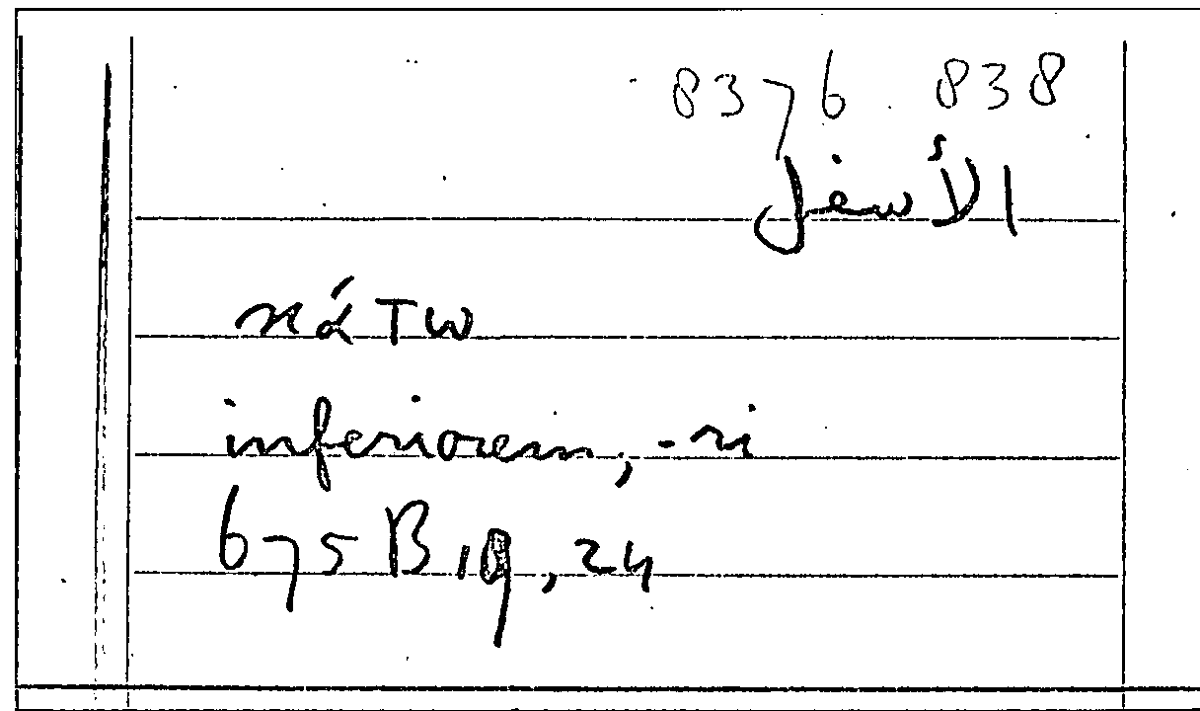 8376. 838
κάτω
inferiorem, -ri
675 B 19, 24